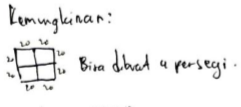 Kemungkinan:
20 20
20 20
20 20
20 20
Bisa dibuat 4 persegi.